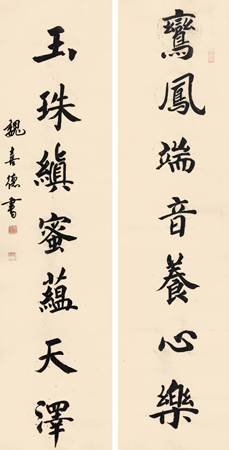 鸞鳳端音養心樂
玉珠縝蜜蘊天澤
魏喜德書